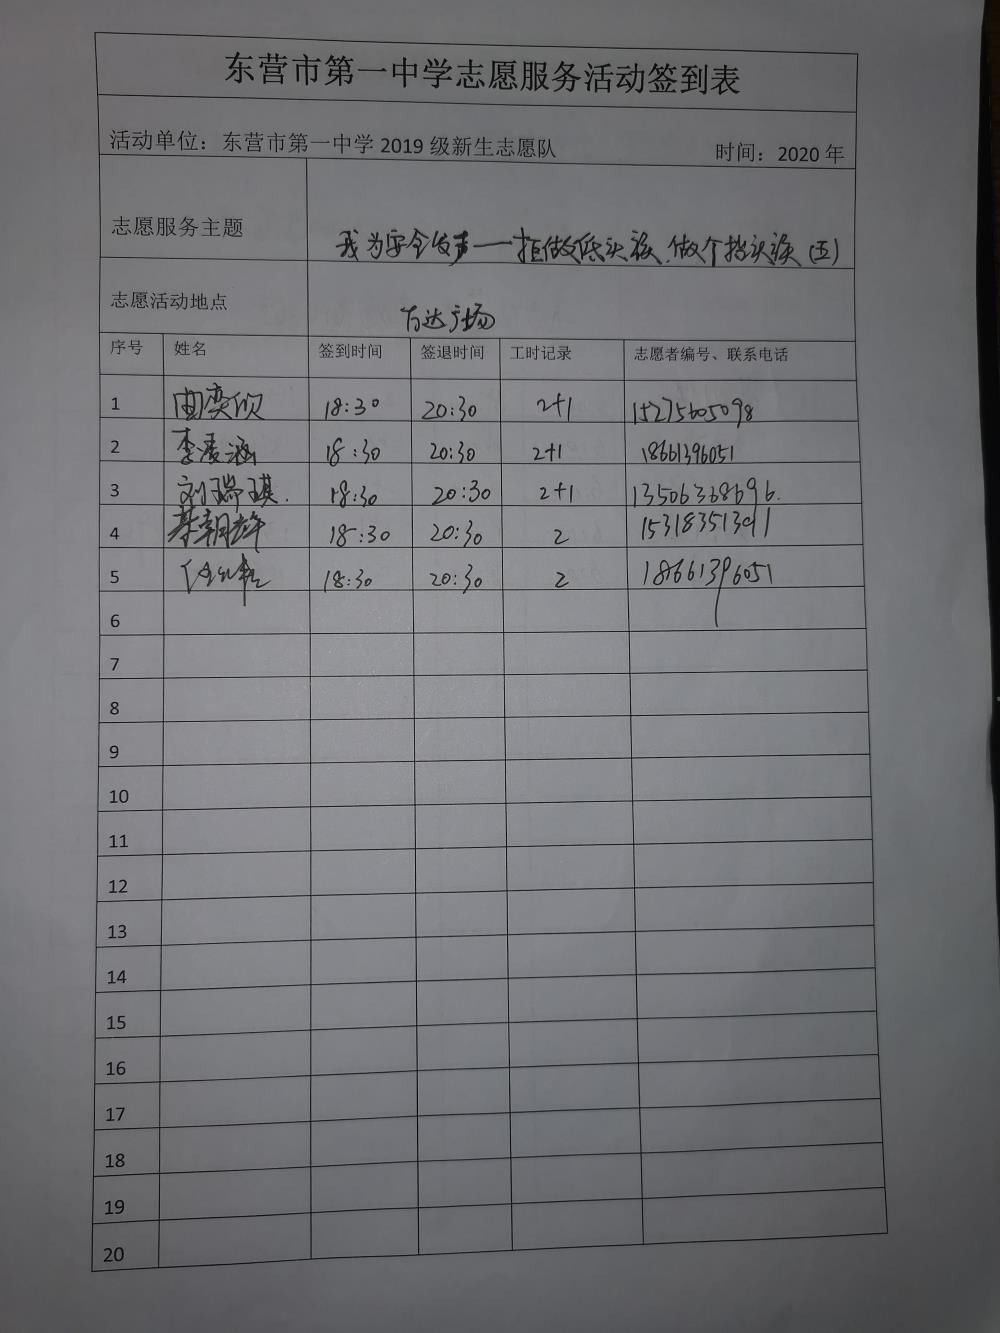 东营市第一中学志愿服务活动签到表
活动单位：东营市第一中学 2019 级新生志愿队 时间：2020 年
志愿服务主题 我为安全发声——拒做低头族、做个抬头族(五)
志愿活动地点 万达广场
序号 姓名 签到时间 签退时间 工时记录 志愿者编号、联系电话
1 18:30 20:30 2+1 15275605098
2 李凌涵 18:30 20:30 2+1 18661396051
3 刘瑞琪. 18:30 20:30 2+1 13506368696.
4 18:30 20:30 2 15318351391
5 18:30 20:30 2 18661396051
6
7
8
9
10
11
12
13
14
15
16
17
18
19
20